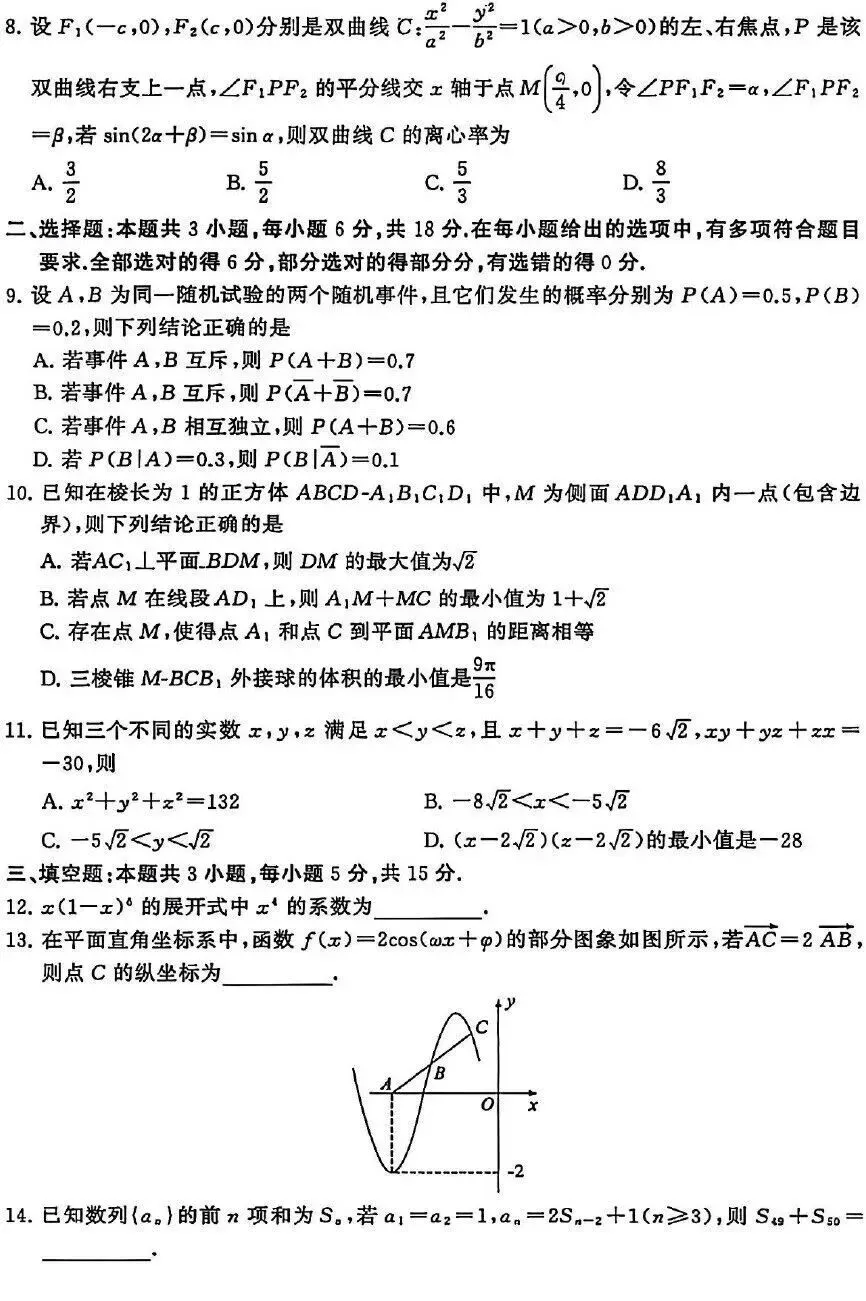 8. 设 F₁(−c,0),F₂(c,0)分别是双曲线 C:x²/a²−y²/b²=1(a>0,b>0)的左、右焦点,P 是该
双曲线右支上一点,∠F₁PF₂ 的平分线交 x 轴于点 M(a/4,0),令∠PF₁F₂=α,∠F₁PF₂
=β,若 sin(2α+β)=sin α,则双曲线 C 的离心率为
A. 3/2 B. 5/2 C. 5/3 D. 8/3
二、选择题:本题共 3 小题,每小题 6 分,共 18 分.在每小题给出的选项中,有多项符合题目
要求.全部选对的得 6 分,部分选对的得部分分,有选错的得 0 分.
9. 设 A,B 为同一随机试验的两个随机事件,且它们发生的概率分别为 P(A)=0.5,P(B)
=0.2,则下列结论正确的是
A. 若事件 A,B 互斥,则 P(A+B)=0.7
B. 若事件 A,B 互斥,则 P(A̅+B̅)=0.7
C. 若事件 A,B 相互独立,则 P(A+B)=0.6
D. 若 P(B|A)=0.3,则 P(B|A̅)=0.1
10. 已知在棱长为 1 的正方体 ABCD-A₁B₁C₁D₁ 中,M 为侧面 ADD₁A₁ 内一点(包含边
界),则下列结论正确的是
A. 若AC₁⊥平面BDM,则 DM 的最大值为√2
B. 若点 M 在线段AD₁ 上,则 A₁M+MC 的最小值为 1+√2
C. 存在点 M,使得点 A₁ 和点 C 到平面AMB₁ 的距离相等
D. 三棱锥 M-BCB₁ 外接球的体积的最小值是9π/16
11. 已知三个不同的实数 x,y,z 满足 x<y<z,且 x+y+z=−6√2,xy+yz+zx=
−30,则
A. x²+y²+z²=132 B. −8√2<x<−5√2
C. −5√2<y<√2 D. (x−2√2)(z−2√2)的最小值是−28
三、填空题:本题共 3 小题,每小题 5 分,共 15 分.
12. x(1−x)⁶ 的展开式中 x⁴ 的系数为________.
13. 在平面直角坐标系中,函数 f(x)=2cos(ωx+φ)的部分图象如图所示,若A⃗C⃗=2 A⃗B⃗,
则点 C 的纵坐标为________.
y
C
B
A
O x
-2
14. 已知数列{aₙ}的前 n 项和为 Sₙ,若 a₁=a₂=1,aₙ=2Sₙ₋₂+1(n≥3),则 S₄₉+S₅₀=
________.